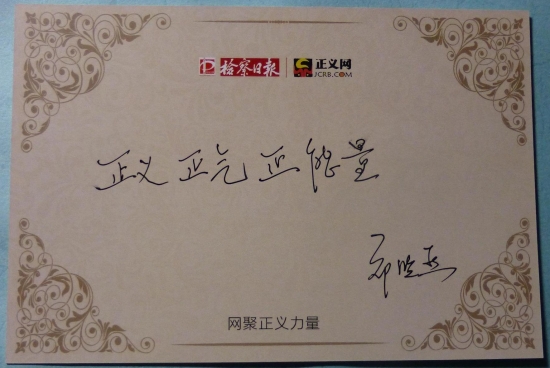 检察日报 正义网
JCRB.COM
正义 正气 正能量
网聚正义力量